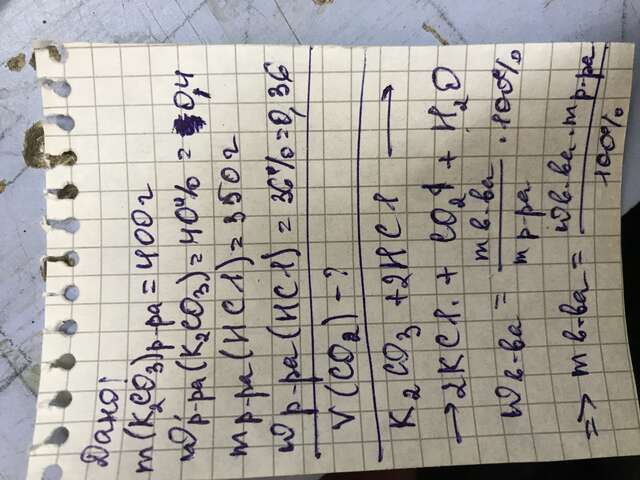 Дано:
m(K₂CO₃)р-ра = 400г
ωр-ра(K₂CO₃) = 40% = 0,4
mр-ра(HCl) = 350г
ωр-ра(HCl) = 36% = 0,36
V(CO₂) - ?
K₂CO₃ + 2HCl ⟶
→ 2KCl + CO₂↑ + H₂O
ωв-ва = mв-ва / mр-ра · 100%
=> mв-ва = ωв-ва · mр-ра / 100%